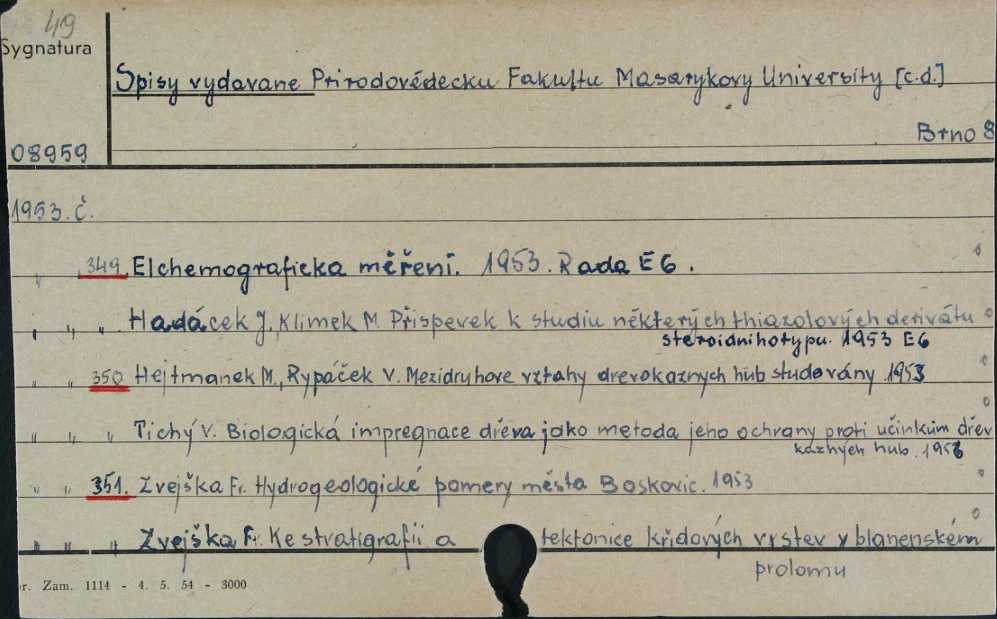 49
Sygnatura
Spisy vydavane Přirodovédecku Fakultu Masarykovy University [c.d.]
08959
Brno 8
1953. č.
" 349 Elchemograficka měření. 1953. Rada E6.
" " " Hadáček J, Klimek M. Přispevek k studiu některých thiazolových derivátu
steroidnihotypu. 1953 E6
" " 350 Hejtmanek M., Rypáček V. Mezidruhove vztahy drevokaznych hub studovány 1953
" " " Tichý V. Biologická impregnace dřeva jako metoda jeho ochrany proti učinkům dřev
kazných hub. 1953
" " 351. Zvejška Fr. Hydrogeologické pomery města Boskovic. 1953
" " " Zvejška Fr. Ke stratigrafii a tektonice křidových vrstev v blanenském
prolomu
r. Zam. 1114 - 4. 5. 54 - 3000